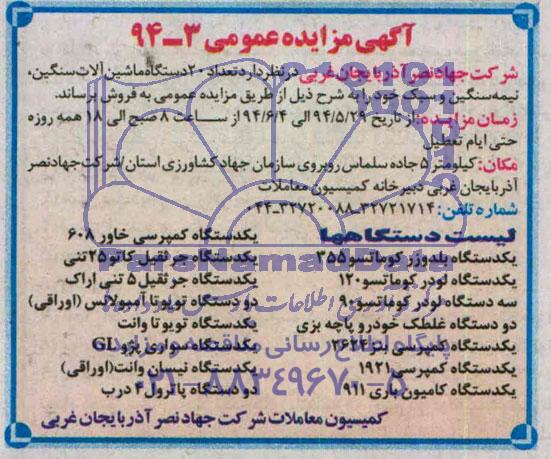 آگهی مزایده عمومی ۳-۹۴
شرکت جهاد نصر آذربایجان غربی در نظر دارد تعداد ۲۰ دستگاه ماشین آلات سنگین،
نیمه سنگین و سبک خود را به شرح ذیل از طریق مزایده عمومی به فروش برساند.
زمان مزایده: از تاریخ ۹۴/۵/۲۹ الی ۹۴/۶/۴ از ساعت ۸ صبح الی ۱۸ همه روزه
حتی ایام تعطیل
مکان: کیلومتر ۵ جاده سلماس روبروی سازمان جهاد کشاورزی استان/شرکت جهاد نصر
آذربایجان غربی دبیرخانه کمیسیون معاملات
شماره تلفن: ۳۲۷۲۱۷۱۴-۳۲۷۲۰۰۸۸-۴۴
لیست دستگاهها
یکدستگاه بلدوزر کوماتسو ۳۵۵
یکدستگاه لودر کوماتسو ۱۲۰
سه دستگاه لودر کوماتسو ۹۰
دو دستگاه غلطک خودرو پاچه بزی
یکدستگاه کمپرسی بنز ۲۶۲۴
یکدستگاه کمپرسی ۱۹۲۱
یکدستگاه کامیون باری ۹۱۱
یکدستگاه کمپرسی خاور ۶۰۸
یکدستگاه جرثقیل کاتو ۲۵ تنی
یکدستگاه جرثقیل ۵ تنی اراک
دو دستگاه تویوتا آمبولانس (اوراقی)
یکدستگاه تویوتا وانت
یکدستگاه سواری پژو GL
یکدستگاه نیسان وانت (اوراقی)
دو دستگاه پاترول ۴ درب
کمیسیون معاملات شرکت جهاد نصر آذربایجان غربی
ParsNamadData
پایگاه اطلاع رسانی مناقصه و مزایده
۰۲۱-۸۸۳۴۹۶۷۰-۵